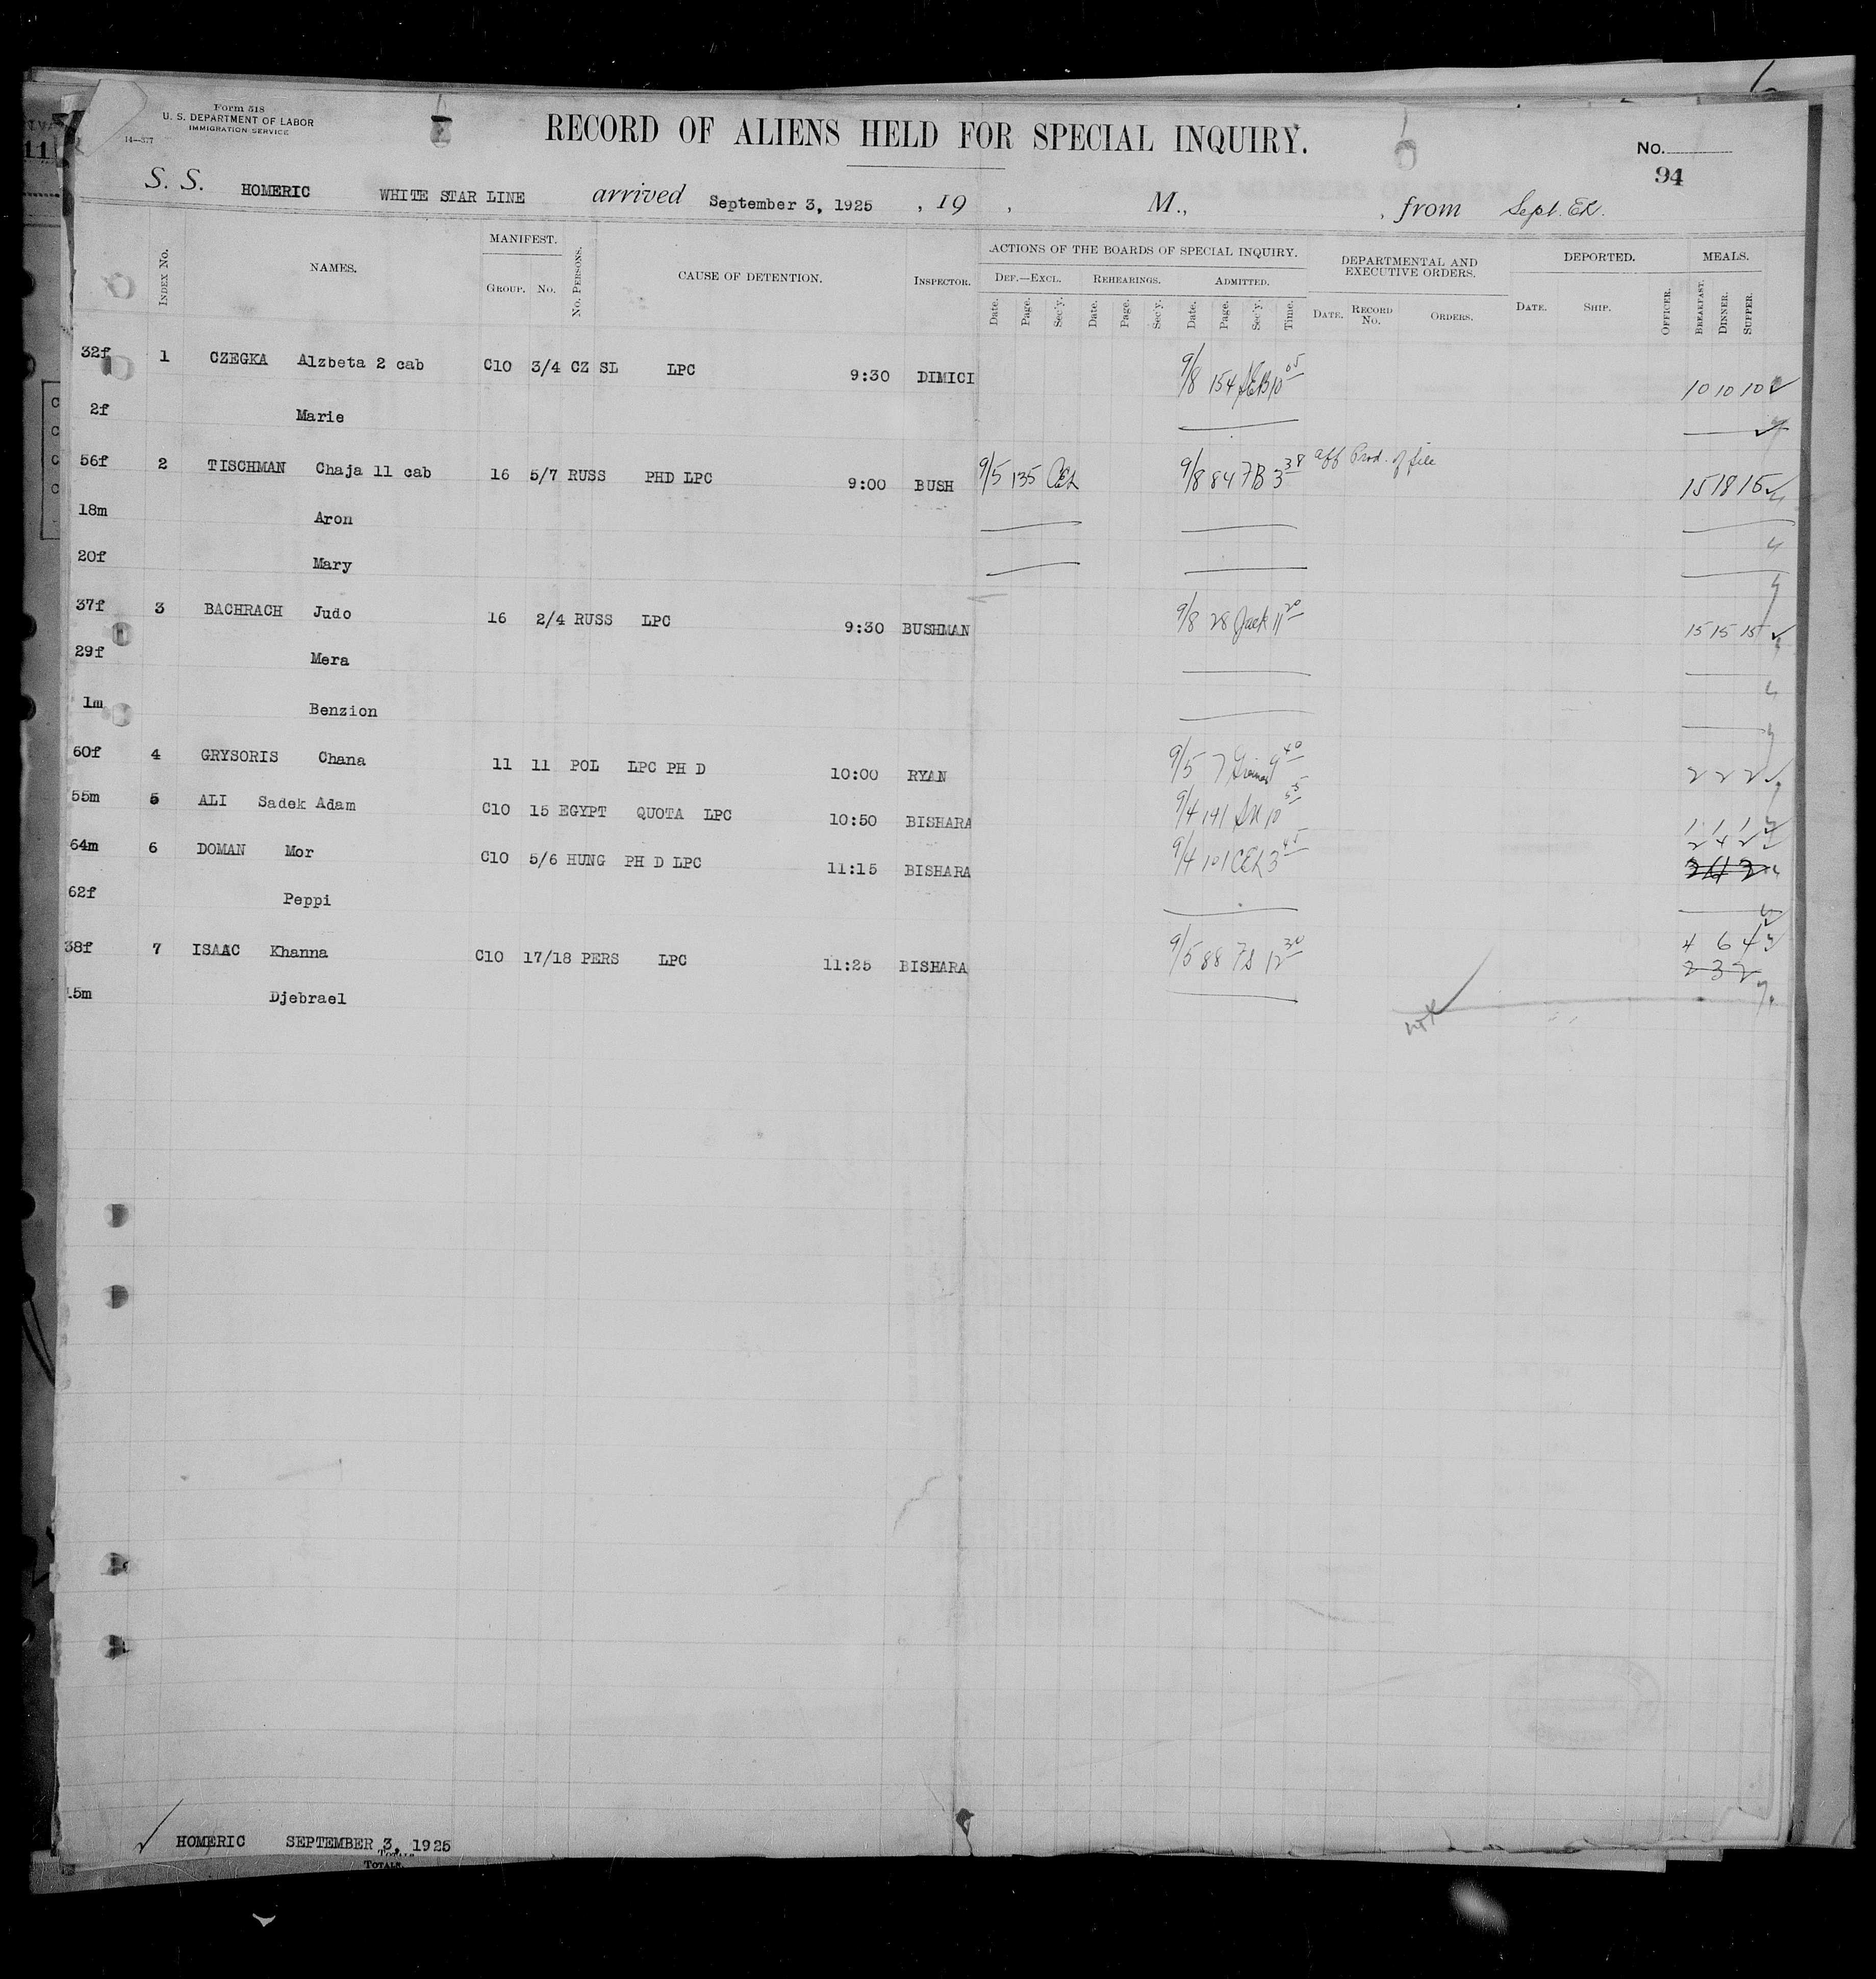 Form 518
U. S. DEPARTMENT OF LABOR
IMMIGRATION SERVICE
14—377
RECORD OF ALIENS HELD FOR SPECIAL INQUIRY.
No.
94
S. S. HOMERIC WHITE STAR LINE arrived September 3, 1925 , 19 , M., , from
INDEX No. NAMES. MANIFEST. GROUP. No. No. PERSONS. CAUSE OF DETENTION. INSPECTOR. ACTIONS OF THE BOARDS OF SPECIAL INQUIRY. DEPARTMENTAL AND EXECUTIVE ORDERS. DEPORTED. MEALS.
DEF.—EXCL. REHEARINGS. ADMITTED.
Date. Page. Sec'y. Date. Page. Sec'y. Date. Page. Sec'y. Time. DATE. RECORD No. ORDERS. DATE. SHIP. OFFICER. BREAKFAST. DINNER. SUPPER.
32f 1 CZEGKA Alzbeta 2 cab C10 3/4 CZ SL LPC 9:30 DIMICI 9/8 154 10 05 10 10 10
2f Marie
56f 2 TISCHMAN Chaja 11 cab 16 5/7 RUSS PHD LPC 9:00 BUSH 9/5 135 CEL 9/8 84 7B 3 38 aff Prod. of file 15 18 15
18m Aron
20f Mary
37f 3 BACHRACH Judo 16 2/4 RUSS LPC 9:30 BUSHMAN 9/8 28 Jack 11 20 15 15 15
29f Mera
1m Benzion
60f 4 GRYSORIS Chana 11 11 POL LPC PH D 10:00 RYAN 9/5 7 9 40 2 2 2
55m 5 ALI Sadek Adam C10 15 EGYPT QUOTA LPC 10:50 BISHARA 9/4 141 10 55 1 1 1
64m 6 DOMAN Mor C10 5/6 HUNG PH D LPC 11:15 BISHARA 9/4 101 CEL 3 45 2 4 2
62f Peppi
38f 7 ISAAC Khanna C10 17/18 PERS LPC 11:25 BISHARA 9/5 88 7S 12 30 4 6 4
2 3 2
15m Djebrael
HOMERIC SEPTEMBER 3, 1925
TOTALS
TOTALS.